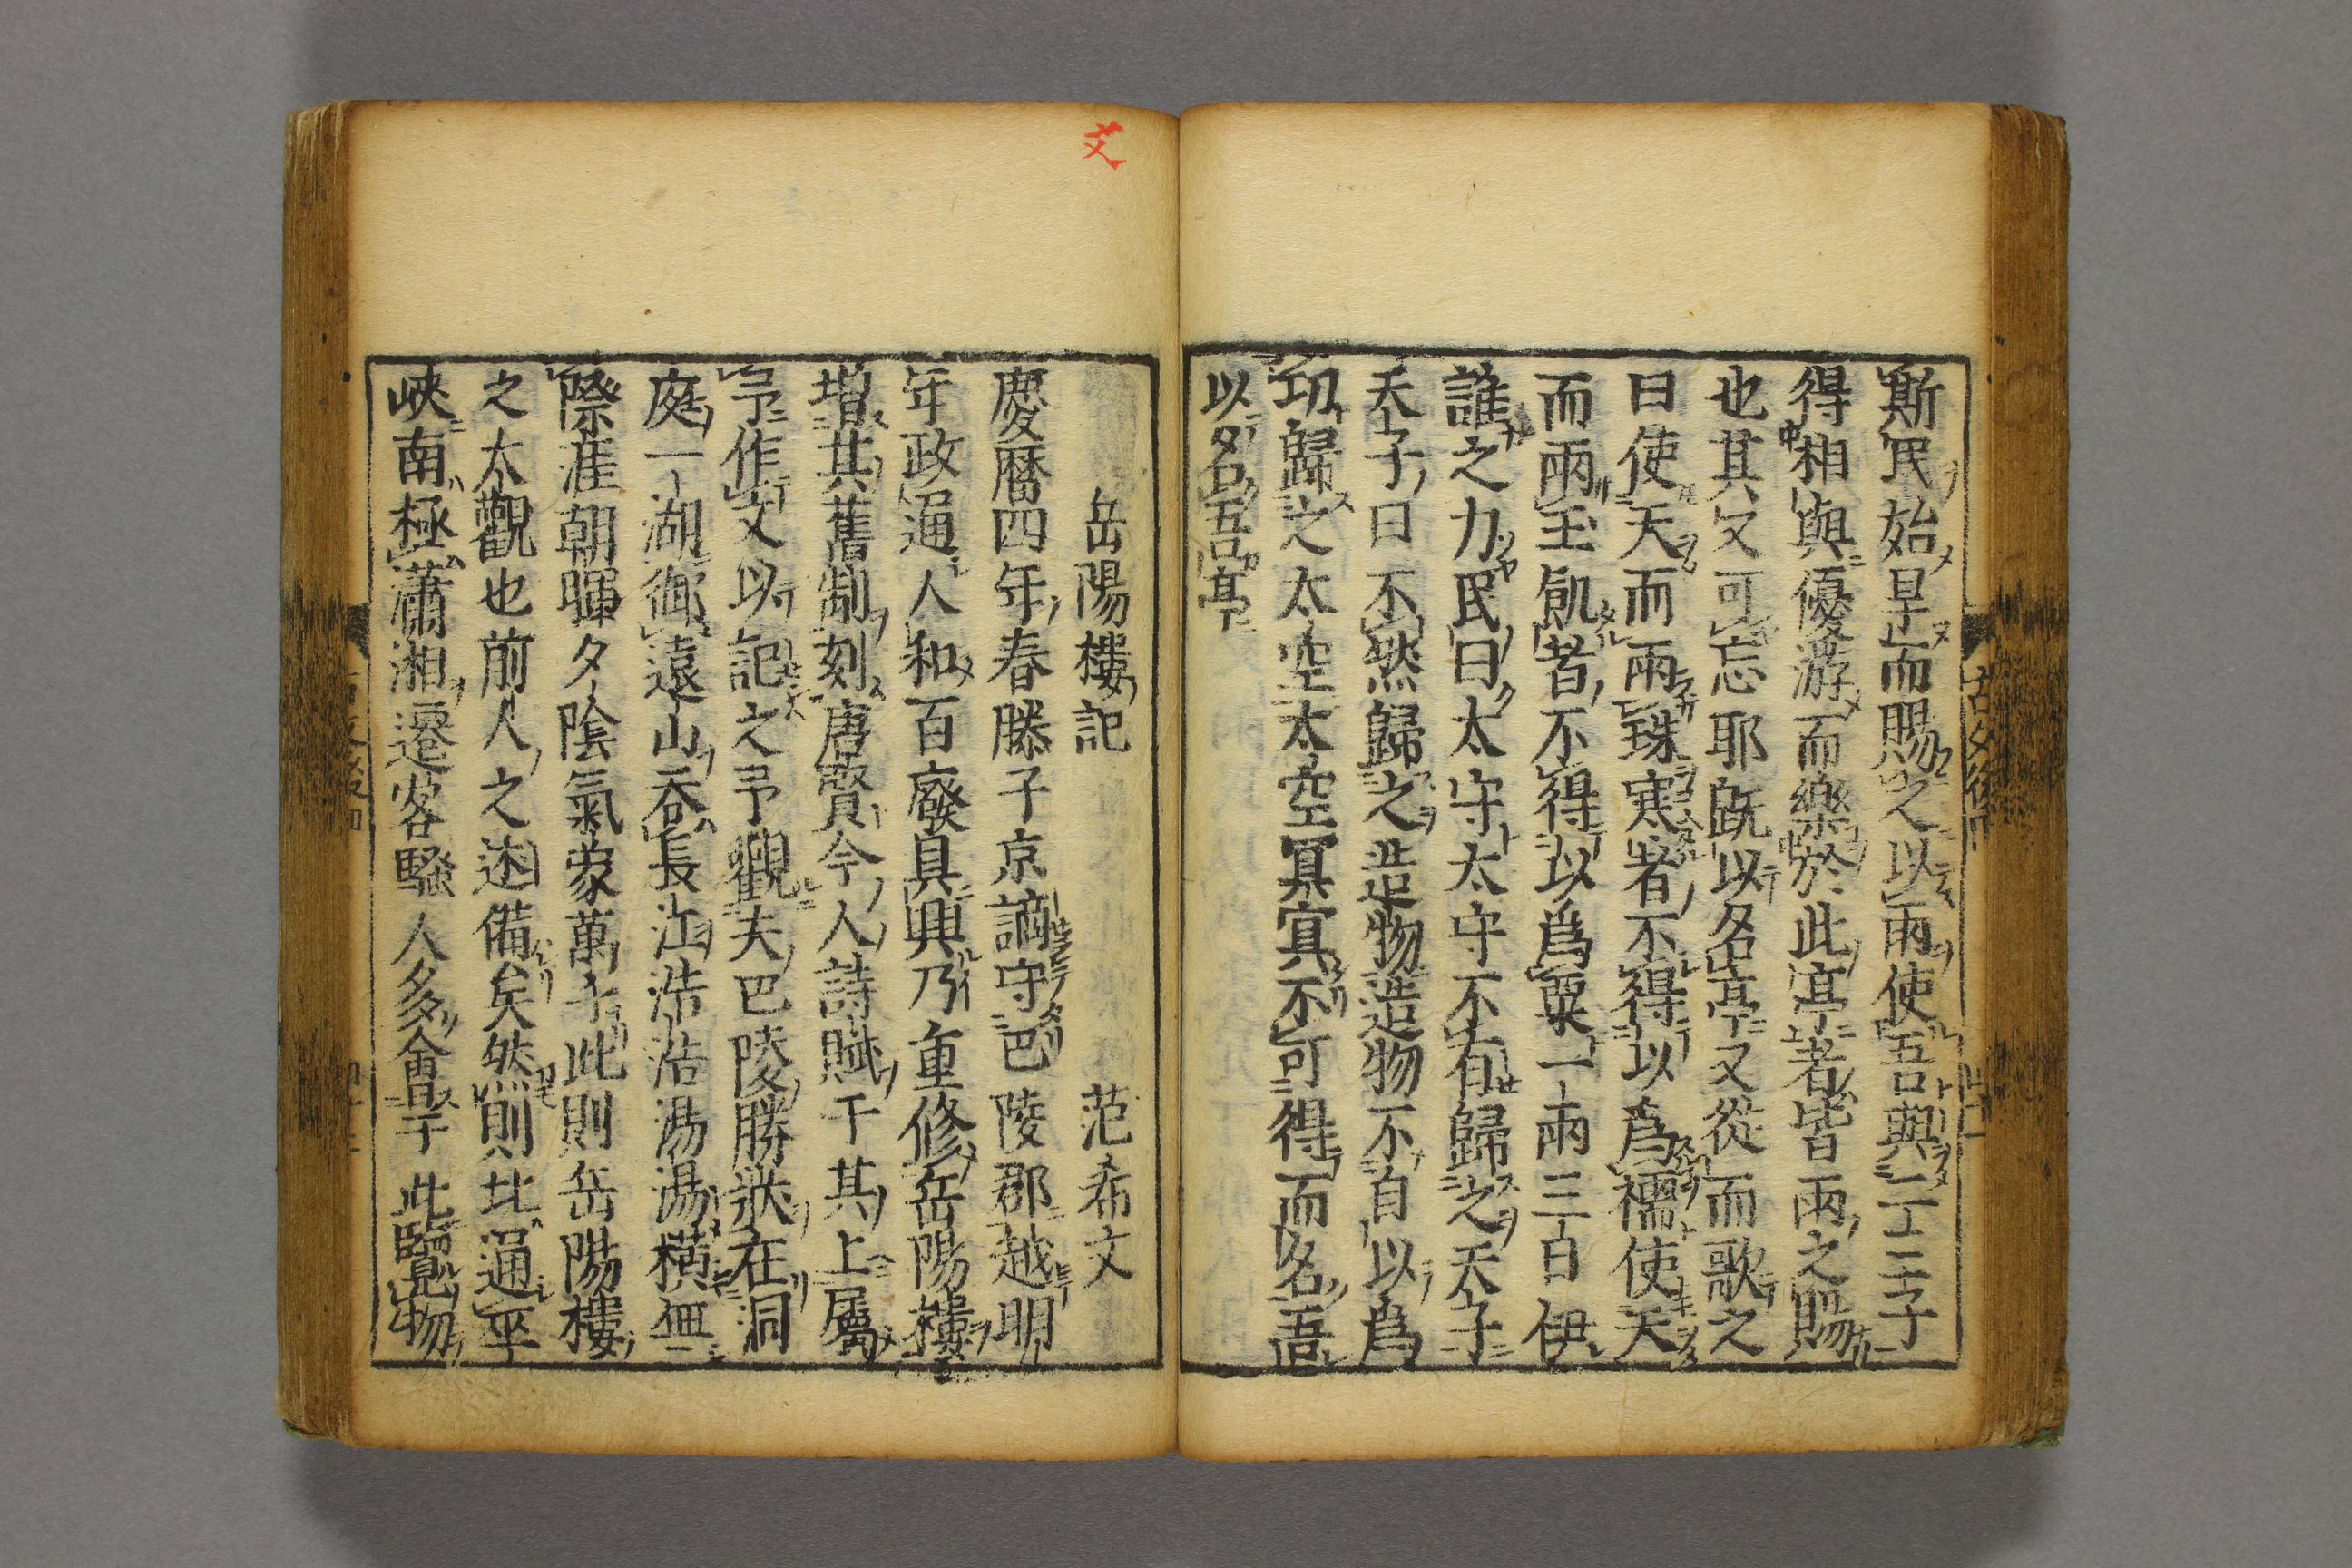 斯民始旱而賜之以雨使吾與二三子
得相與優游而樂於此亭者皆雨之賜
也其又可忘耶既以名亭又從而歌之
曰使天而雨珠寒者不得以爲襦使天
而雨玉飢者不得以爲粟一雨三日伊
誰之力民曰太守太守不有歸之天子
天子曰不然歸之造物造物不自以爲
功歸之太空太空冥冥不可得而名吾
以名吾亭
岳陽樓記 范希文
慶曆四年春滕子京謫守巴陵郡越明
年政通人和百廢具興乃重修岳陽樓
增其舊制刻唐賢今人詩賦于其上屬
予作文以記之予觀夫巴陵勝狀在洞
庭一湖銜遠山吞長江浩浩湯湯橫無
際涯朝暉夕陰氣象萬千此則岳陽樓
之大觀也前人之述備矣然則北通巫
峽南極瀟湘遷客騷人多會于此覽物